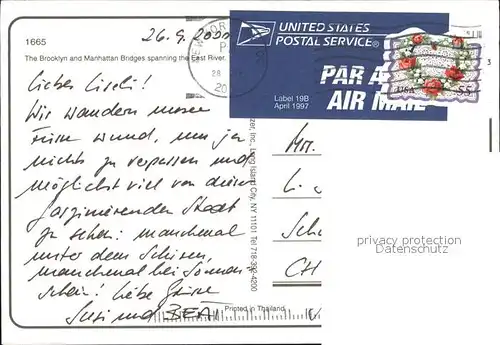 1665
26.9.2000
The Brooklyn and Manhattan Bridges spanning the East River.
UNITED STATES
POSTAL SERVICE
PAR A
AIR MAIL
Label 19B
April 1997
USA
55
28
20
3
Lieber Liseli!
Wir wandern unsere
Füsse wund, um ja
nichts zu verpassen und
möglichst viel von dieser
faszinierenden Stadt
zu sehen: manchmal
unter dem Schirm,
manchmal bei Sonnen-
schein! Liebe Grüsse
Susi und BEAT
Long Island City, NY 11101 Tel 718-392-4200
Printed in Thailand
L.
CH
privacy protection
Datenschutz